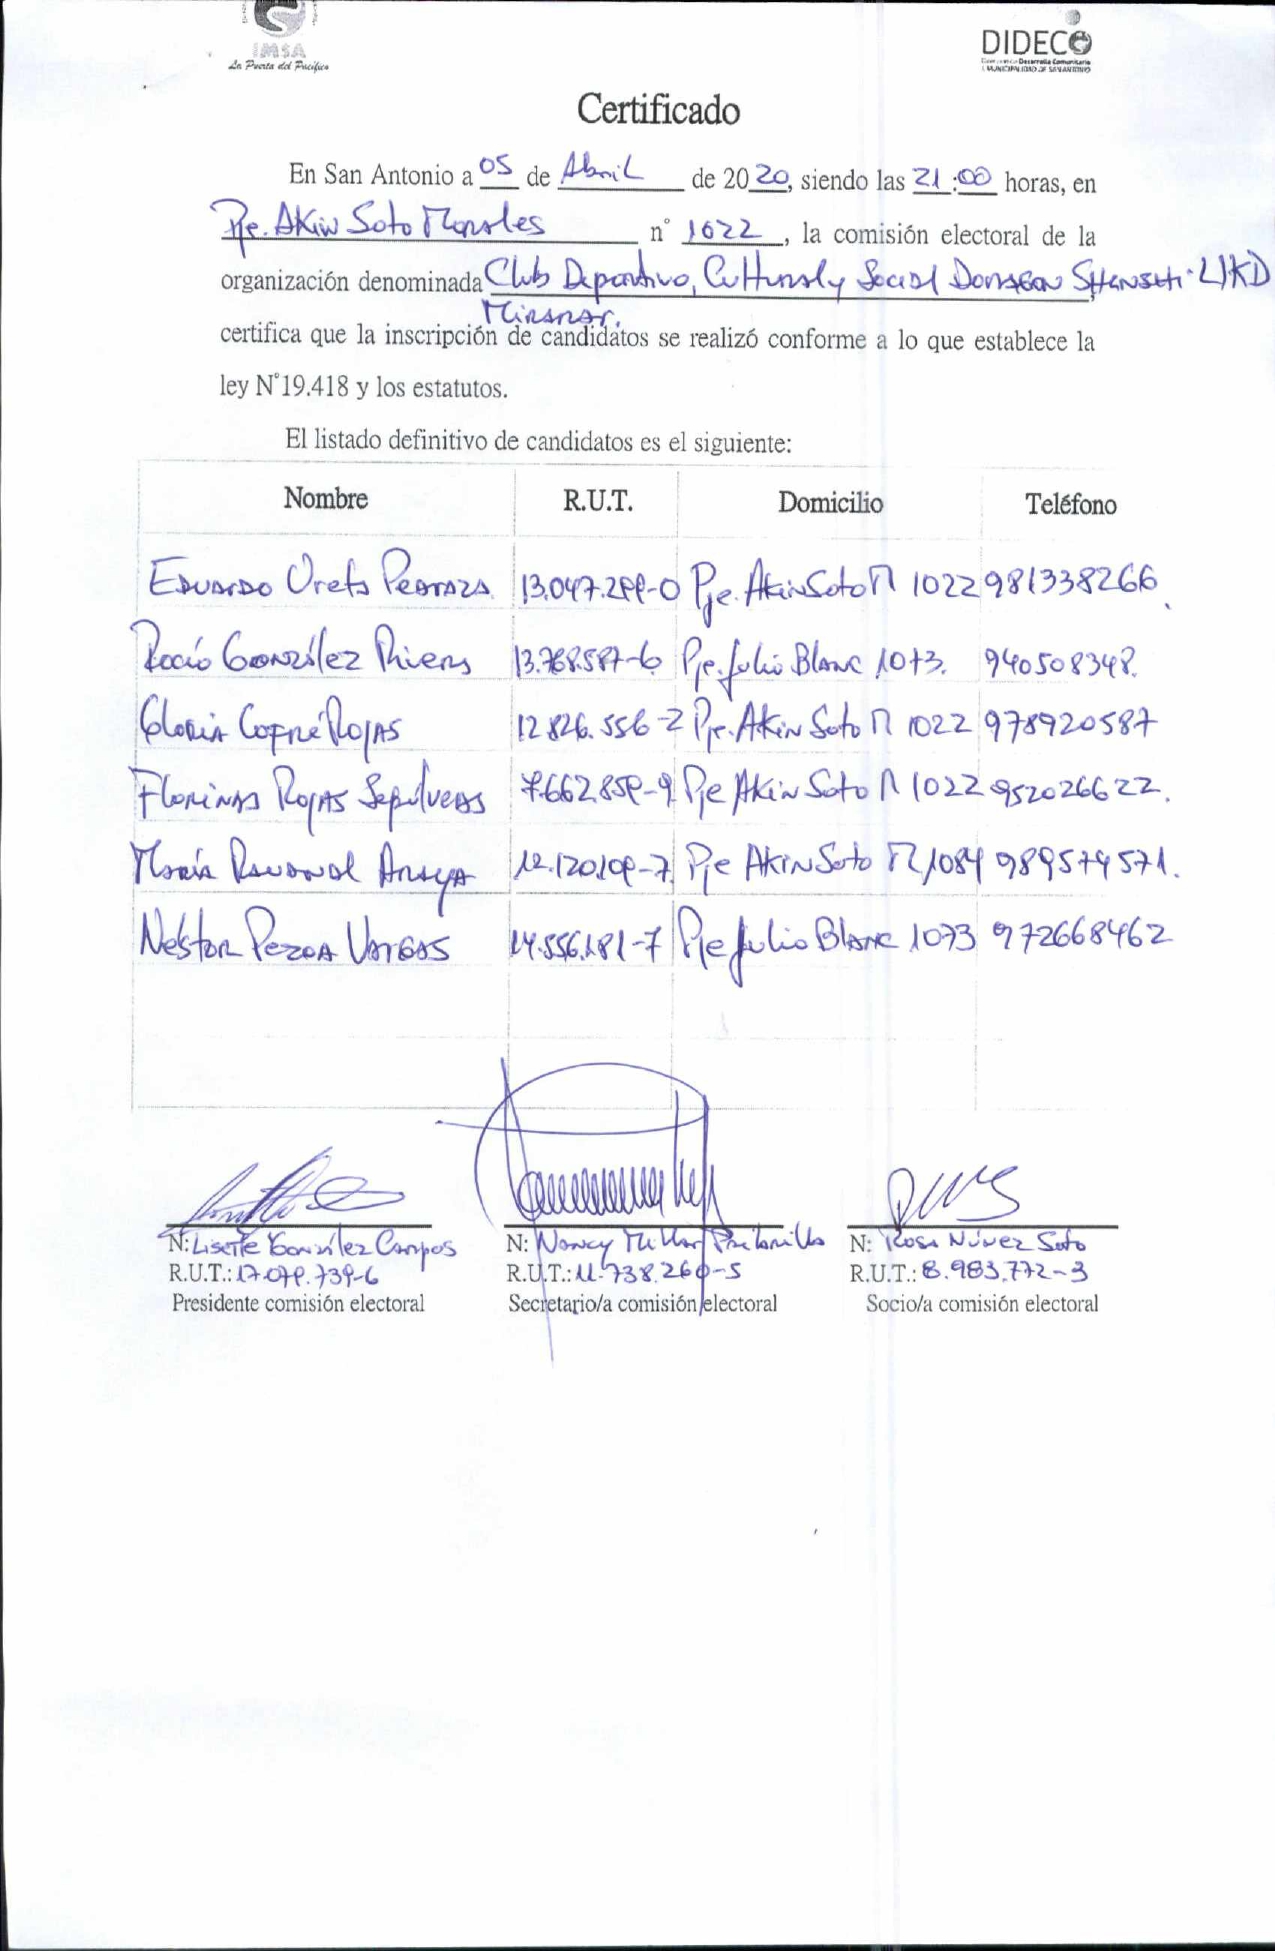 IMSA
La Puerta del Pacífico
DIDECO
Desarrollo Comunitario
I. MUNICIPALIDAD DE SAN ANTONIO
Certificado
En San Antonio a 05 de Abril de 2020, siendo las 21:00 horas, en
Pje. Akin Soto Morales n° 1022, la comisión electoral de la
organización denominada Club Deportivo, Cultural y Social Donseon Shenshi LIKD
Miramar.
certifica que la inscripción de candidatos se realizó conforme a lo que establece la
ley N°19.418 y los estatutos.
El listado definitivo de candidatos es el siguiente:
Nombre R.U.T. Domicilio Teléfono
Eduardo Ureta 13.047.299-0 Pje. Akin Soto M 1022 981338266
Rocío González Rivera 13.768.587-6 Pje. Julio Blanc 1073. 940508348.
Gloria Cofré Rojas 12.826.556-2 Pje. Akin Soto M 1022 978920587
Florinda Rojas Sepúlveda 7.662.859-9 Pje Akin Soto M 1022 952026622.
María Sandoval Araya 12.120.109-7 Pje Akin Soto M 1084 989574571.
Néstor Pezoa Vargas 14.556.181-7 Pje Julio Blanc 1073 972668462
N: Lisette González Campos N: Nancy Millar N: Rosa Núñez Soto
R.U.T.: 17.079.739-6 R.U.T.: 11.738.260-5 R.U.T.: 8.983.772-3
Presidente comisión electoral Secretario/a comisión electoral Socio/a comisión electoral